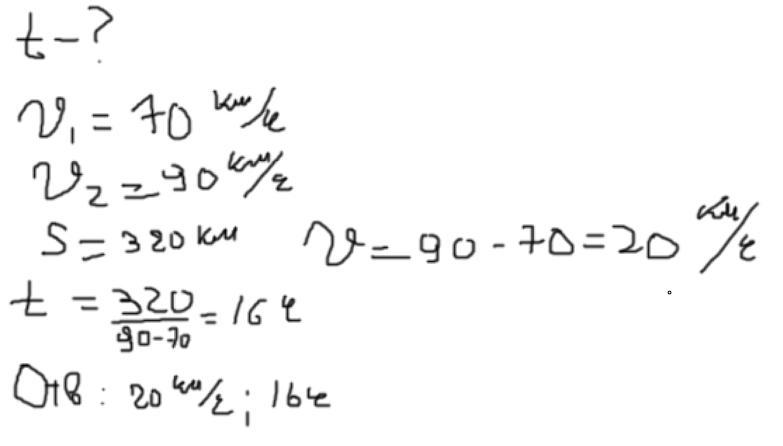 t - ?
v₁ = 70 км/ч
v₂ = 90 км/ч
S = 320 км
v = 90 - 70 = 20 км/ч
t = 320/90-70 = 16 ч
Отв: 20 км/ч; 16ч